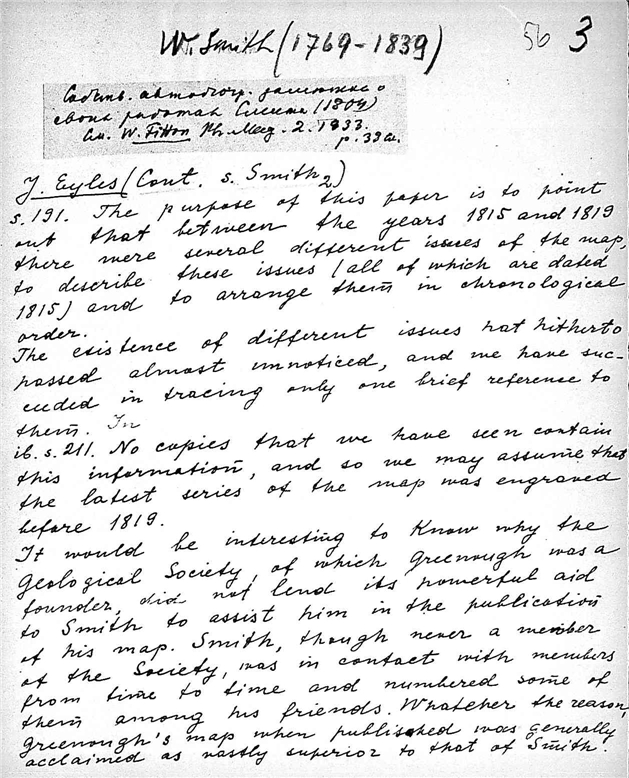 W. Smith (1769-1839) 56 3
Собств. автобиогр. заметка о
своих работах Смита (1804)
См. W. Fitton Ph. Mag. 2. 1833.
p. 39 сл.
J. Eyles (Cont. s. Smith₂)
s. 191. The purpose of this paper is to point
out that between the years 1815 and 1819
there were several different issues of the map,
to describe these issues (all of which are dated
1815) and to arrange them in chronological
order.
The existence of different issues hat hitherto
passed almost unnoticed, and we have suc-
ceeded in tracing only one brief reference to
them. In
ib. s. 211. No copies that we have seen contain
this information, and so we may assume that
the latest series of the map was engraved
before 1819.
It would be interesting to know why the
Geological Society, of which Greenough was a
founder, did not lend its powerful aid
to Smith to assist him in the publication
of his map. Smith, though never a member
of the Society, was in contact with members
from time to time and numbered some of
them among his friends. Whatever the reason,
Greenough's map when published was generally
acclaimed as vastly superior to that of Smith.